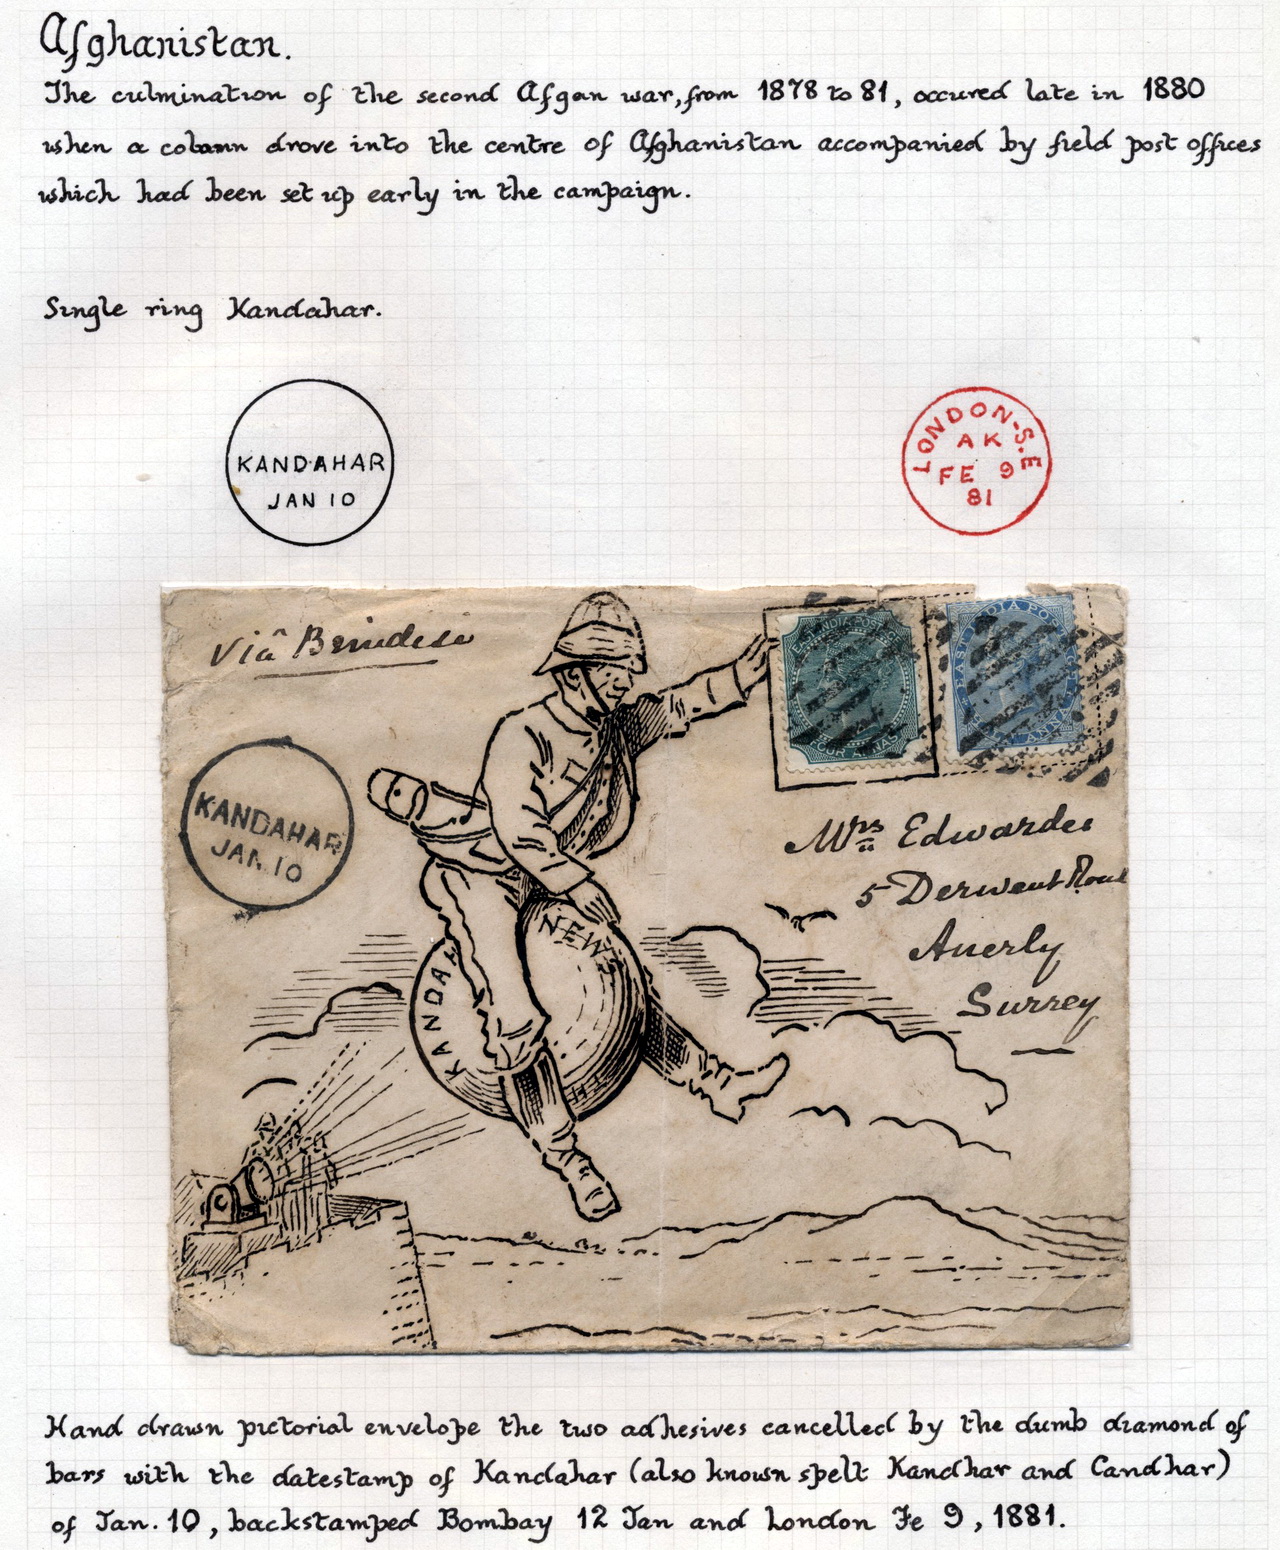 Afghanistan.
The culmination of the second Afgan war, from 1878 to 81, occured late in 1880
when a column drove into the centre of Afghanistan accompanied by field post offices
which had been set up early in the campaign.
Single ring Kandahar.
KANDAHAR
JAN 10
LONDON-S.E
AK
FE 9
81
Viâ Brindisi
EAST INDIA POSTAGE
FOUR ANNAS
EAST INDIA POSTAGE
ANNA
KANDAHAR
JAN. 10
Mrs Edwardes
5 Derwent Road
Anerly
Surrey
NEWS
KANDAH
Hand drawn pictorial envelope the two adhesives cancelled by the dumb diamond of
bars with the datestamp of Kandahar (also known spelt Kandhar and Candhar)
of Jan. 10, backstamped Bombay 12 Jan and London Fe 9, 1881.